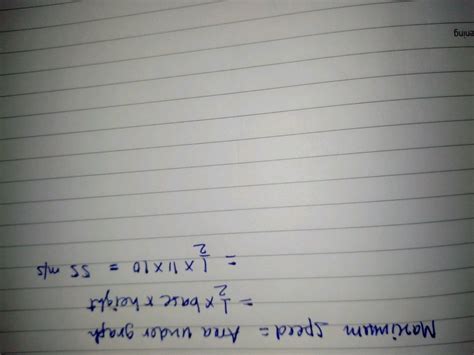 Maximum speed = Area under graph
= 1/2 × base × height
= 1/2 × 11 × 10 = 55 m/s
ening